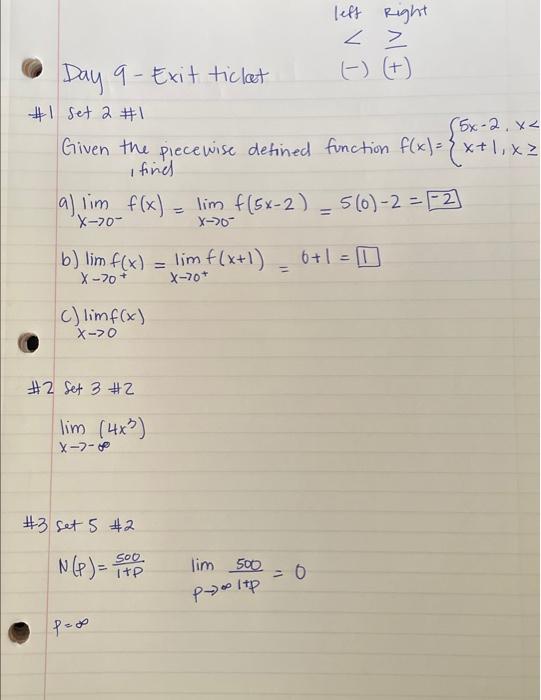 left Right
< ≥
(-) (+)
Day 9 - Exit ticket
#1 Set 2 #1
Given the piecewise defined function f(x) = { 5x-2, x<
x+1, x≥
, find
a) lim f(x) = lim f(5x-2) = 5(0)-2 = -2
x->0⁻ x->0⁻
b) lim f(x) = lim f(x+1) = 0+1 = 1
x->0⁺ x->0⁺
c) lim f(x)
x->0
#2 Set 3 #2
lim (4x³)
x->-∞
#3 Set 5 #2
N(p) = 500/1+p lim 500/1+p = 0
p->∞
p=∞